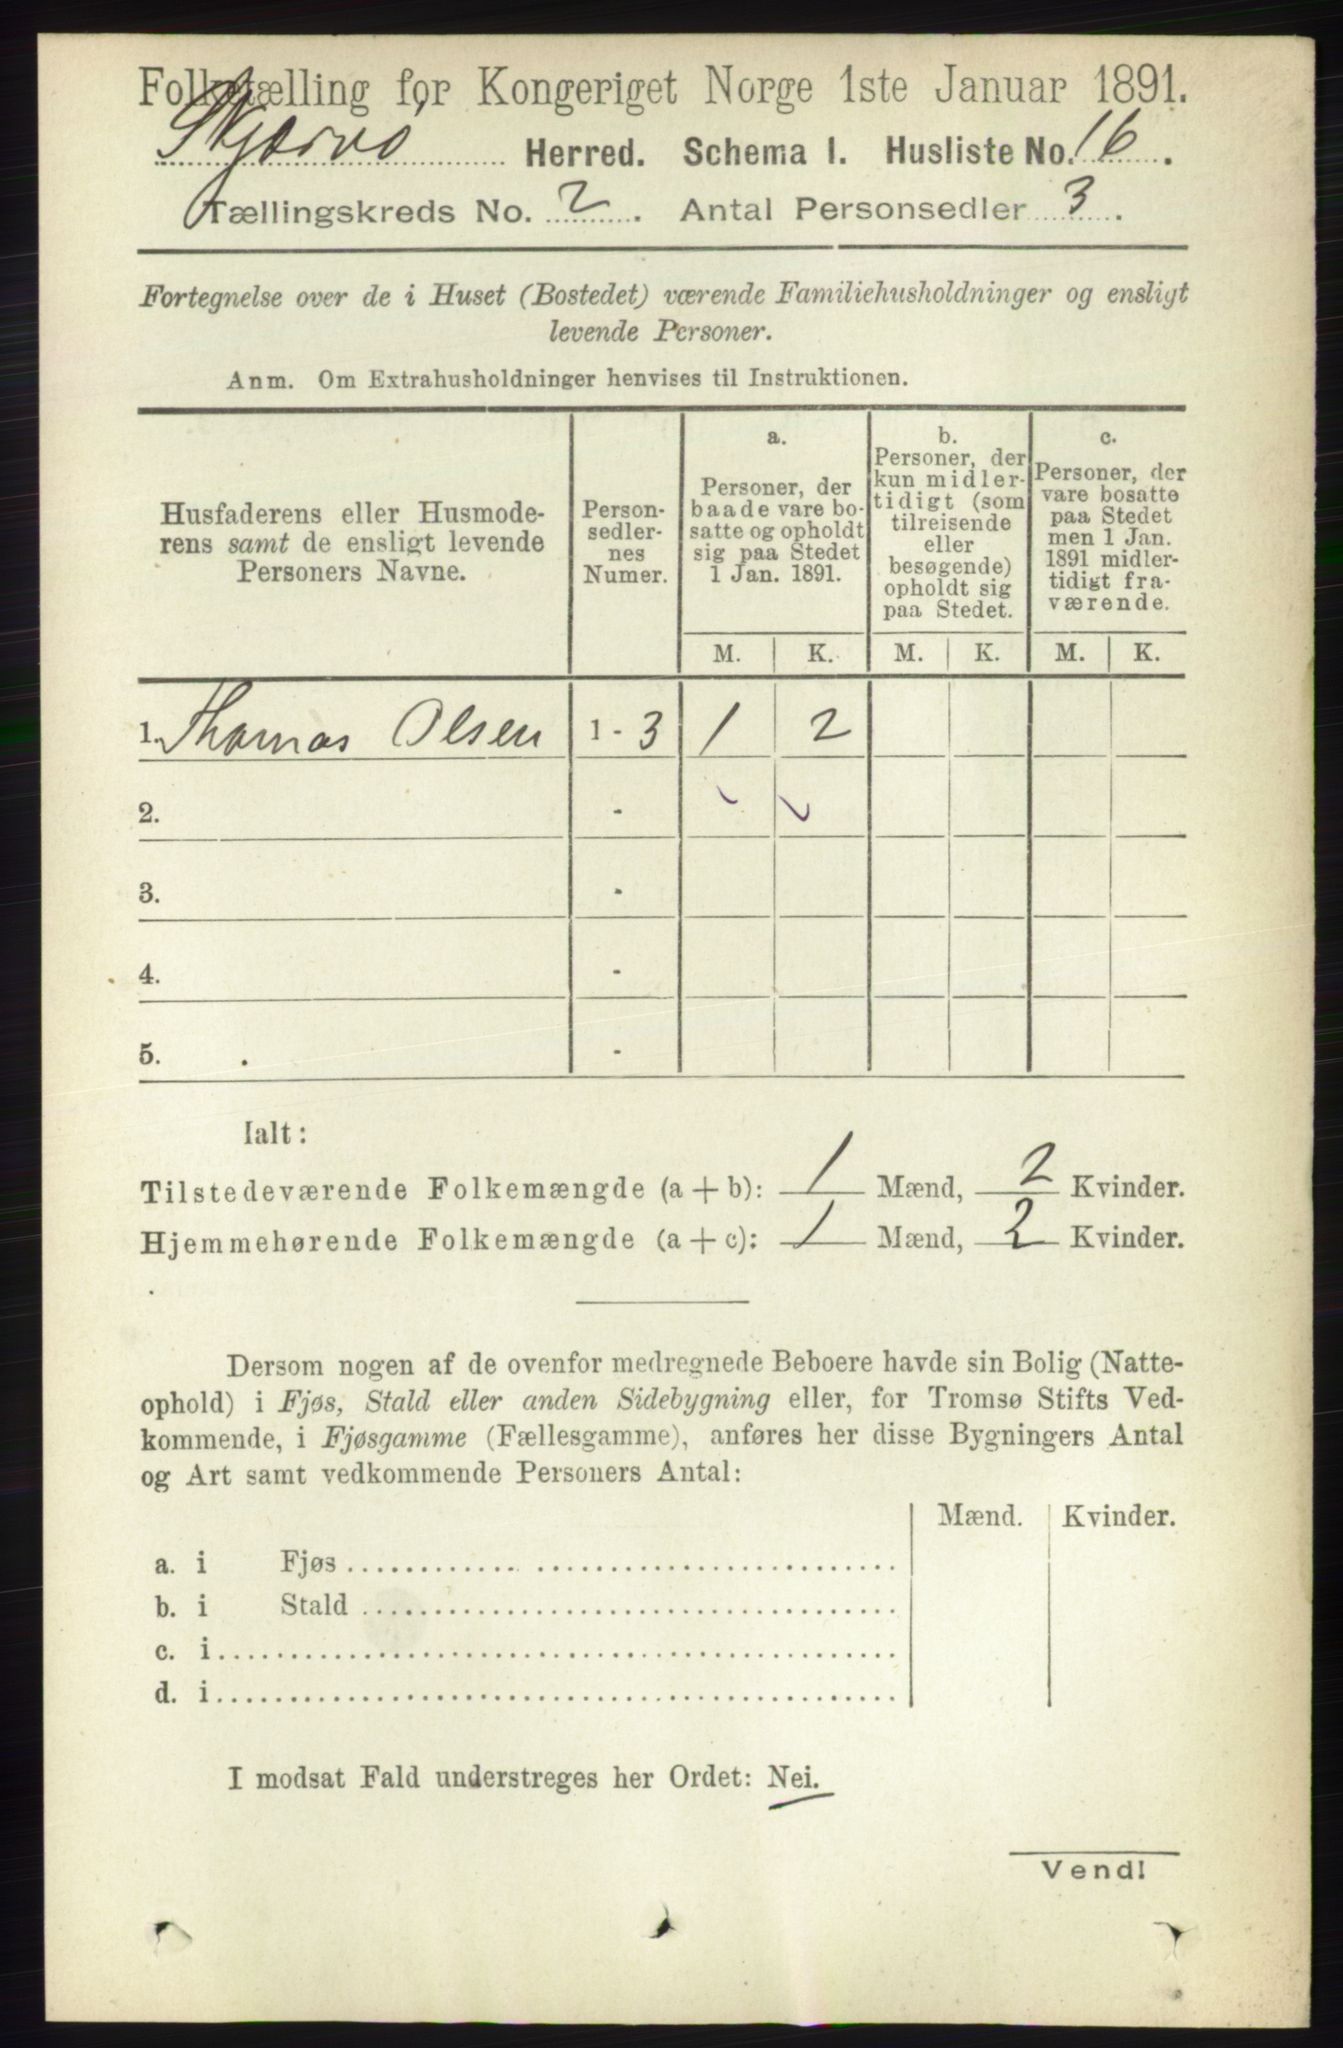 Folketælling for Kongeriget Norge 1ste Januar 1891.
Skjærvø Herred. Schema I. Husliste No. 16.
Tællingskreds No. 2. Antal Personsedler 3.
Fortegnelse over de i Huset (Bostedet) værende Familiehusholdninger og ensligt
levende Personer.
Anm. Om Extrahusholdninger henvises til Instruktionen.
Husfaderens eller Husmode-
rens samt de ensligt levende
Personers Navne.
Person-
sedler-
nes
Numer.
a.
Personer, der
baade vare bo-
satte og opholdt
sig paa Stedet
1 Jan. 1891.
b.
Personer, der
kun midler-
tidigt (som
tilreisende
eller
besøgende)
opholdt sig
paa Stedet.
c.
Personer, der
vare bosatte
paa Stedet
men 1 Jan.
1891 midler-
tidigt fra-
værende.
M. K. M. K. M. K.
1. Thomas Olsen 1 - 3 1 2
2. -
3. -
4. -
5. -
Ialt:
Tilstedeværende Folkemængde (a + b): 1 Mænd, 2 Kvinder.
Hjemmehørende Folkemængde (a + c): 1 Mænd, 2 Kvinder.
Dersom nogen af de ovenfor medregnede Beboere havde sin Bolig (Natte-
ophold) i Fjøs, Stald eller anden Sidebygning eller, for Tromsø Stifts Ved-
kommende, i Fjøsgamme (Fællesgamme), anføres her disse Bygningers Antal
og Art samt vedkommende Personers Antal:
Mænd. Kvinder.
a. i Fjøs
b. i Stald
c. i
d. i
I modsat Fald understreges her Ordet: Nei.
Vend!